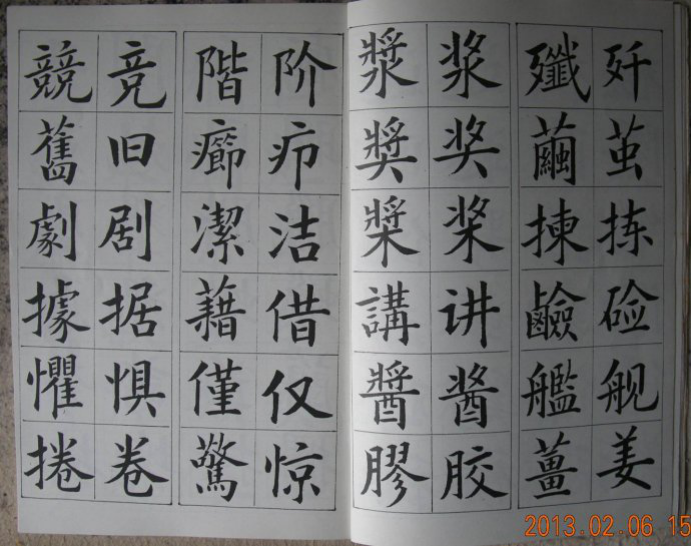 歼茧拣硷舰姜
殲繭揀鹼艦薑
浆奖桨讲酱胶
漿奬槳講醬膠
阶疖洁借仅惊
階癤潔藉僅驚
竞旧剧据惧卷
競舊劇據懼捲
2013.02.06 15